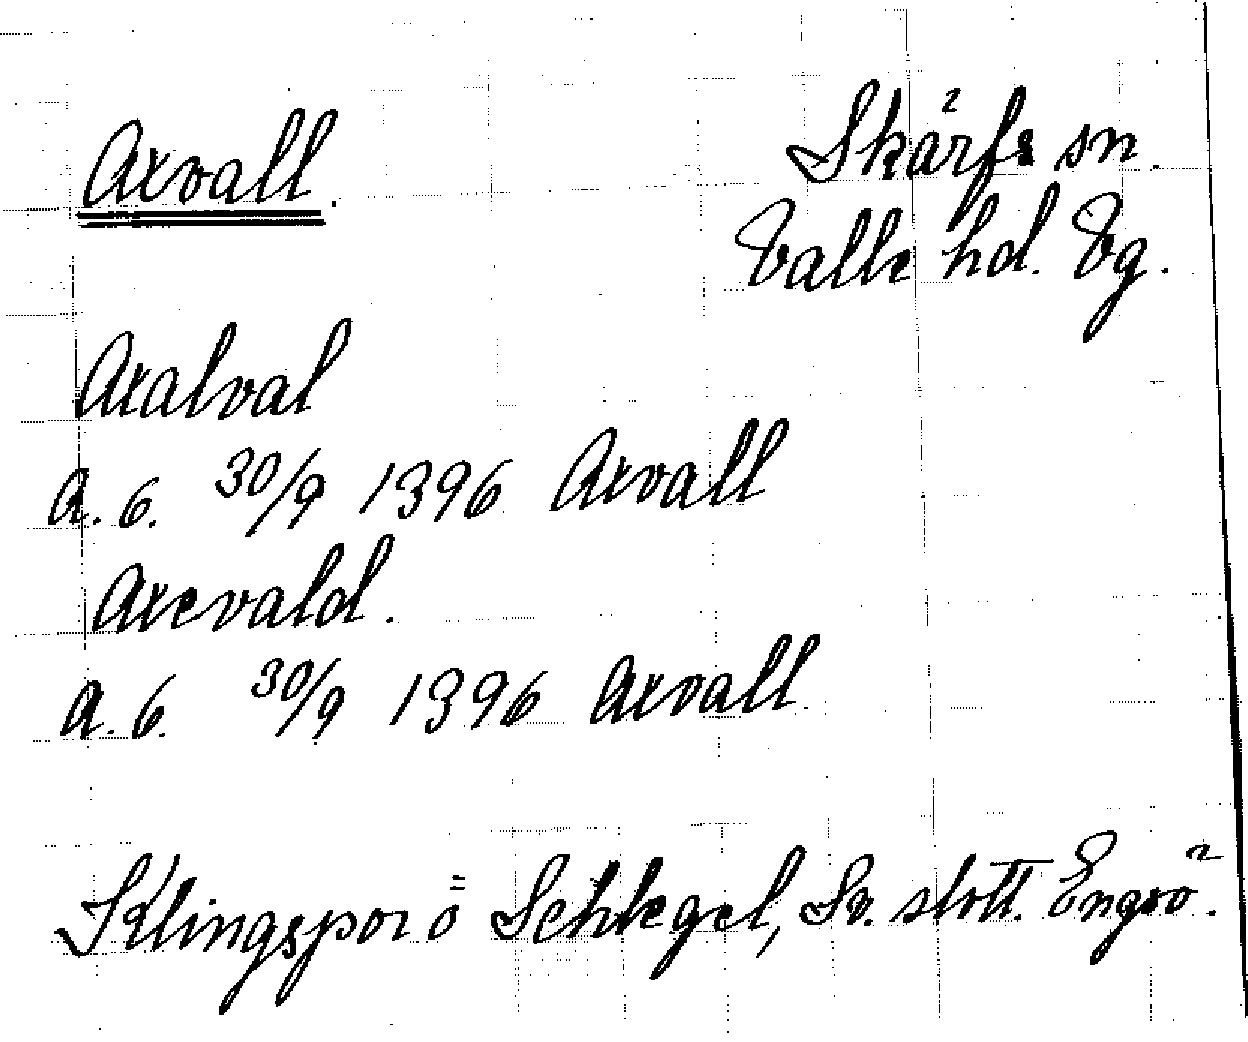 Axvall.
Skärfs sn.
Valle hd. Vg.
Axalval
A. 6. 30/9 1396 Axvall
Axevald.
A. 6. 30/9 1396 Axvall.
Klingspor o Schlegel, Sv. slott. Engsö.